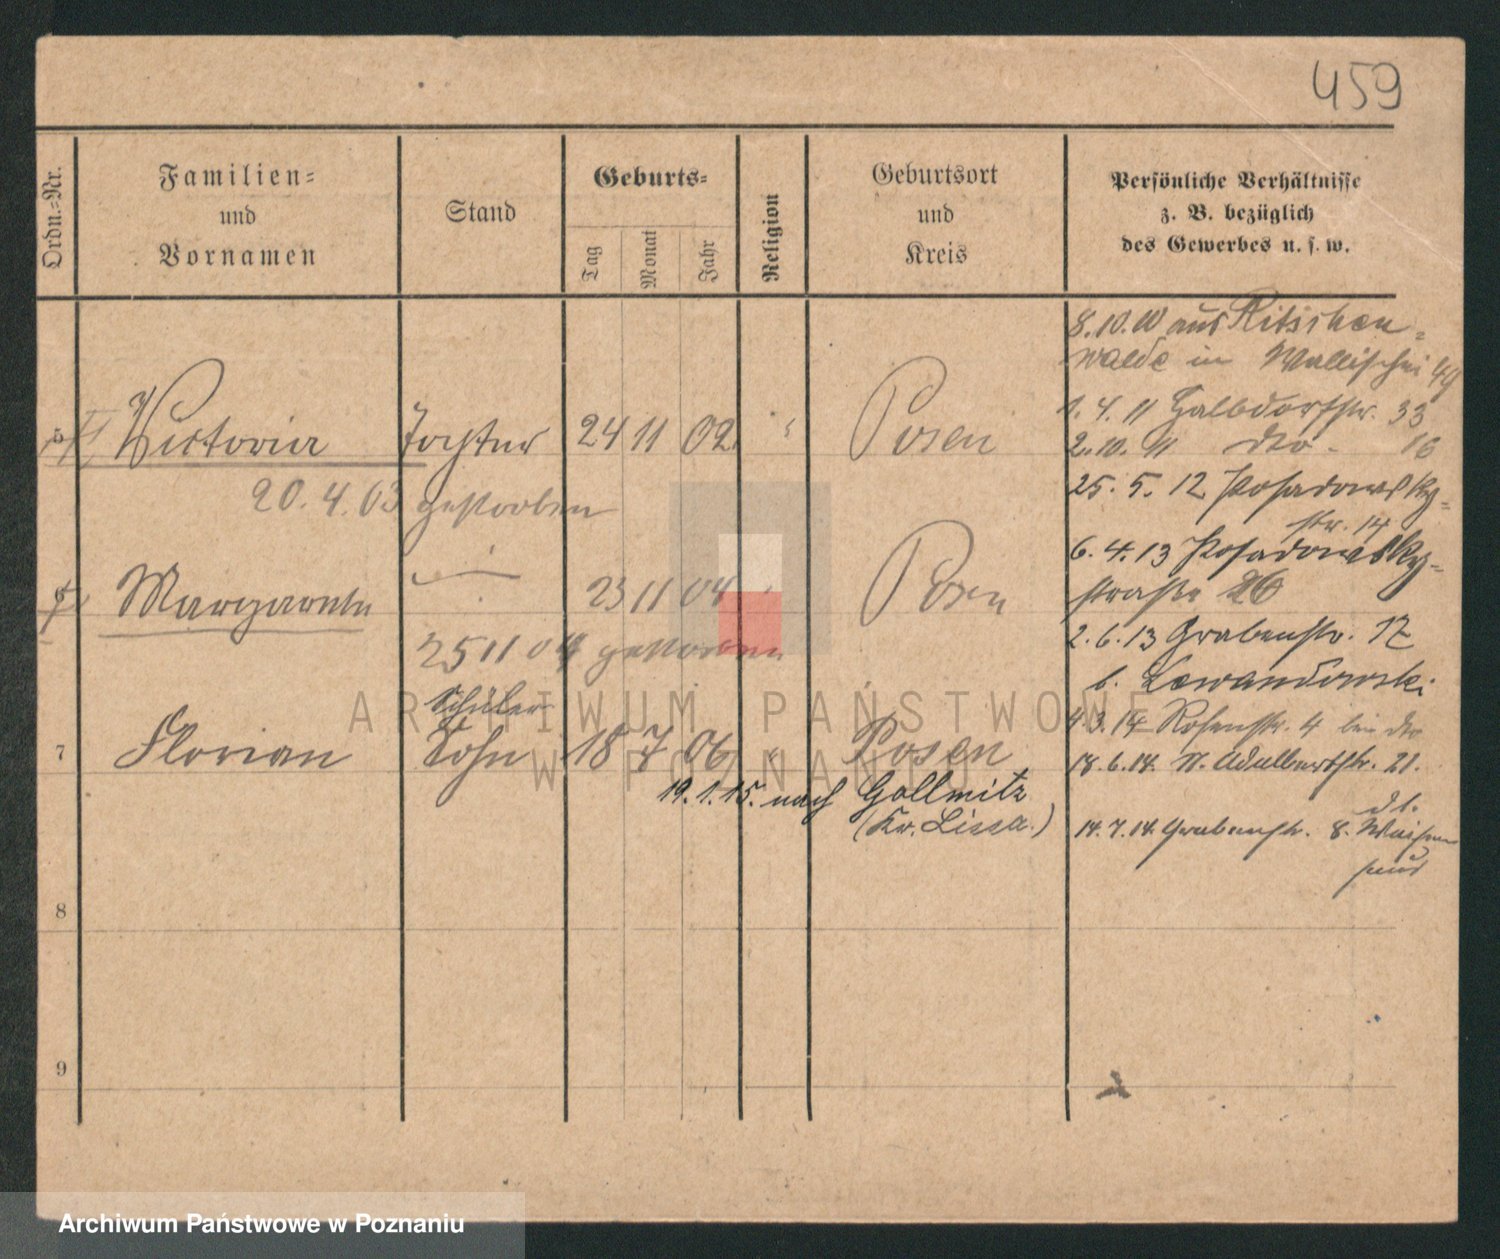 459
Ordn.-Nr.
Familien-
und
Vornamen
Stand
Geburts-
Tag
Monat
Jahr
Religion
Geburtsort
und
Kreis
Persönliche Verhältnisse
z. B. bezüglich
des Gewerbes u. s. w.
5 Victoria Tochter 24 11 02 Posen
20.4.03 gestorben
6 Margarete 23 11 04 Posen
25 11 04 gestorben
Schüler
7 Florian Sohn 18 7 06 Posen
19.1.15. nach Gollmitz
(Kr. Lissa.)
8
9
8.10.10 aus Ritschen-
walde in Wallischei 49
1.4.11 Halbdorfstr. 33
2.10.11 dto. 16
25.5.12 Posadowsky-
str. 14
6.4.13 Posadowsky-
straße 26
2.6.13 Grabenstr. 17
b. Lewandowski
4.3.14 Rosenstr. 4 bei dto
18.6.14. St. Adalbertstr. 21.
14.7.14 Grabenstr. 8. Waisen
haus
ARCHIWUM PAŃSTWOWE
W POZNANIU
Archiwum Państwowe w Poznaniu